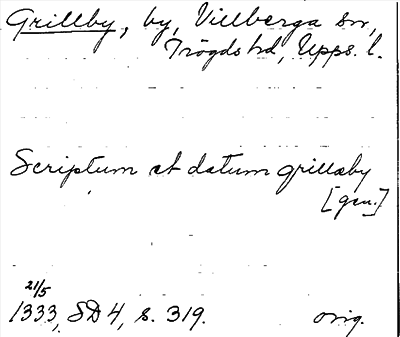 Grillby, by, Villberga sn,
Trögds hd, Upps. l.
Scriptum et datum grillaby
[gen.]
21/5
1333, SD 4, s. 319. orig.